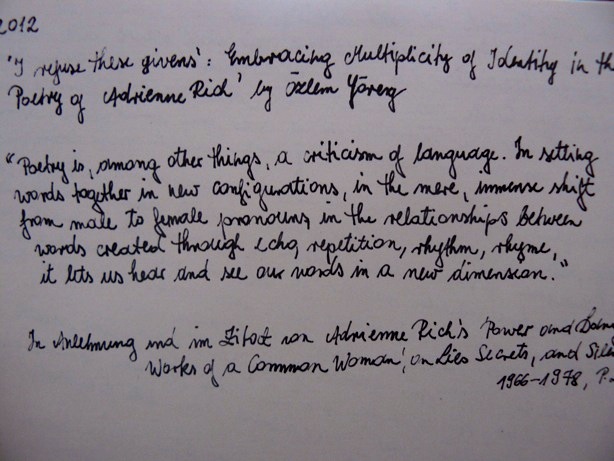 2012
'I refuse these givens': Embracing Multiplicity of Identity in the
Poetry of Adrienne Rich' by Özlem
"Poetry is, among other things, a criticism of language. In setting
words together in new configurations, in the mere, immense shift
from male to female pronouns, in the relationships between
words created through echo, repetition, rhythm, rhyme,
it lets us hear and see our words in a new dimension."
In Anlehnung und im Zitat von Adrienne Rich's 'Power and
Works of a Common Woman', on Lies Secrets, and
1966-1978, P.